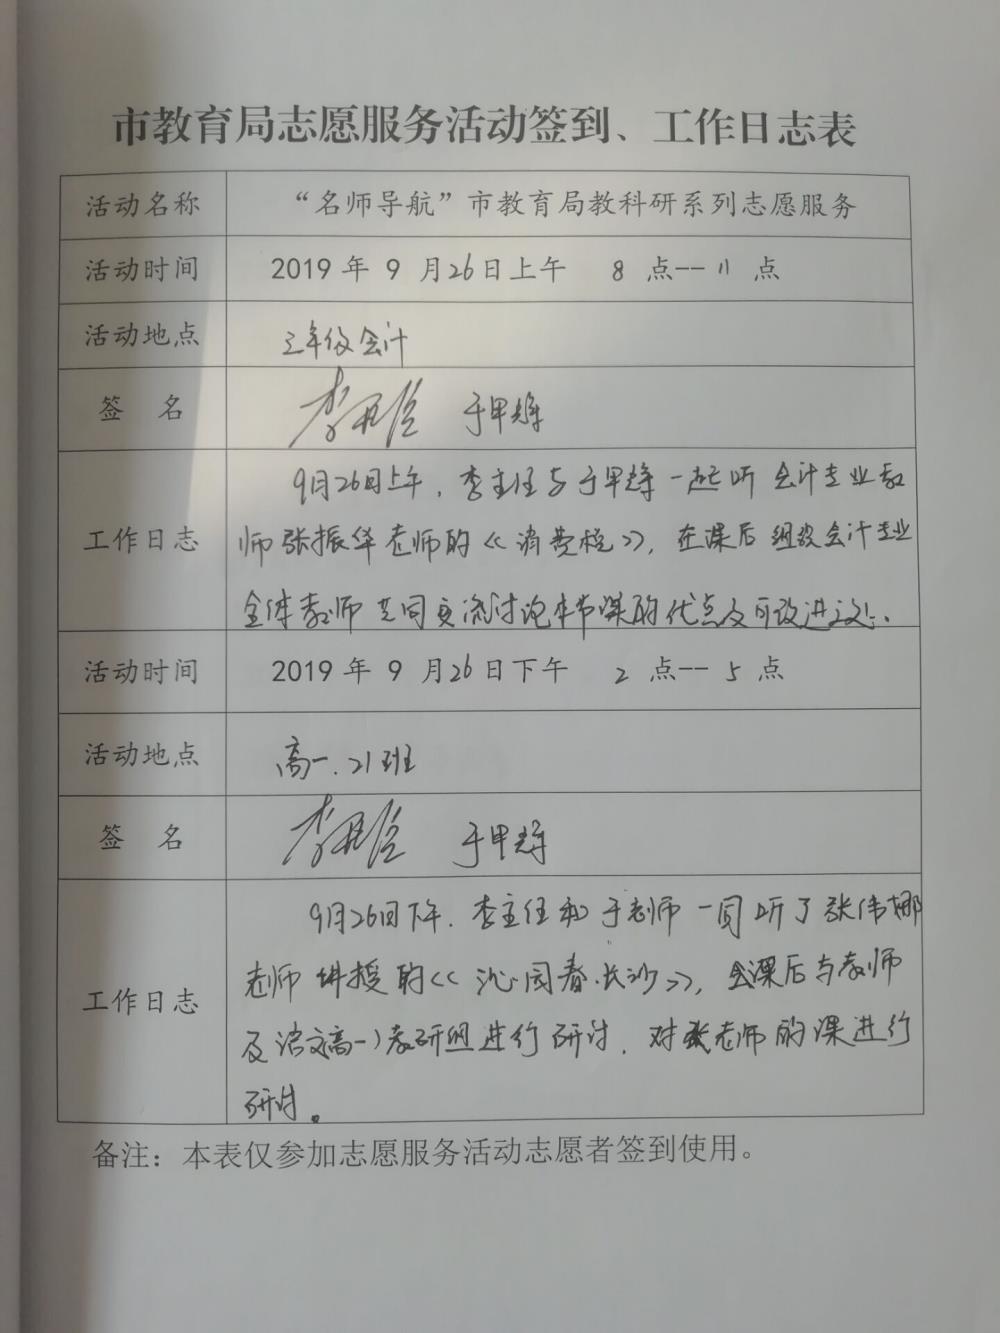 市教育局志愿服务活动签到、工作日志表
活动名称 “名师导航”市教育局教科研系列志愿服务
活动时间 2019 年 9 月26日上午 8 点--11 点
活动地点 三年级会计
签 名 李 于甲
9月26日上午，李主任与于甲 一起听 会计专业教
工作日志 师张振华老师的《消费税》，在课后组织会计专业
全体教师共同交流讨论本节课的优点及可改进之处.
活动时间 2019 年 9 月26日下午 2 点--5 点
活动地点 高一.21班
签 名 李 于甲
9月26日下午.李主任和于老师一同听了张伟娜
老师讲授的《沁园春.长沙》，课后与教师
工作日志
及语文高一)教研组进行研讨，对张老师的课进行
研讨。
备注：本表仅参加志愿服务活动志愿者签到使用。